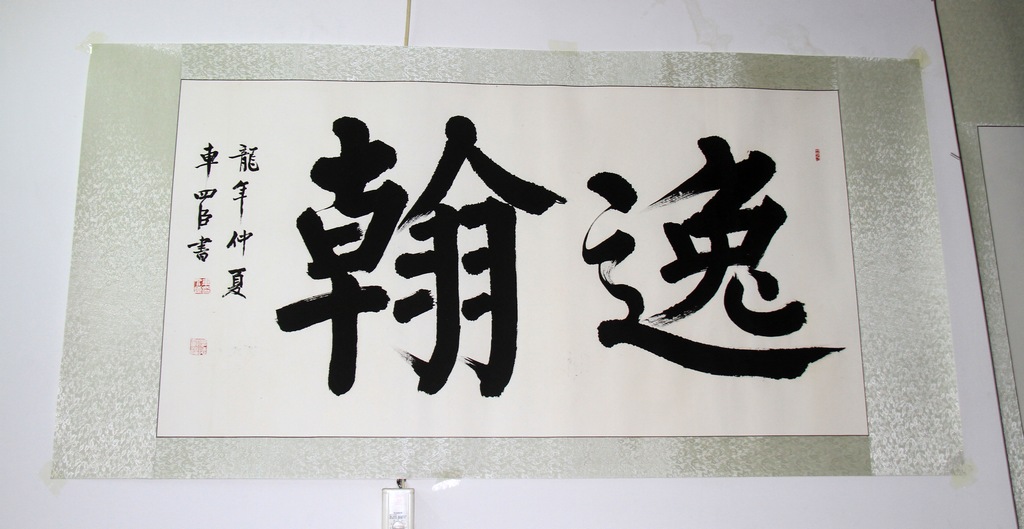 逸翰
龍年仲夏
車四臣書